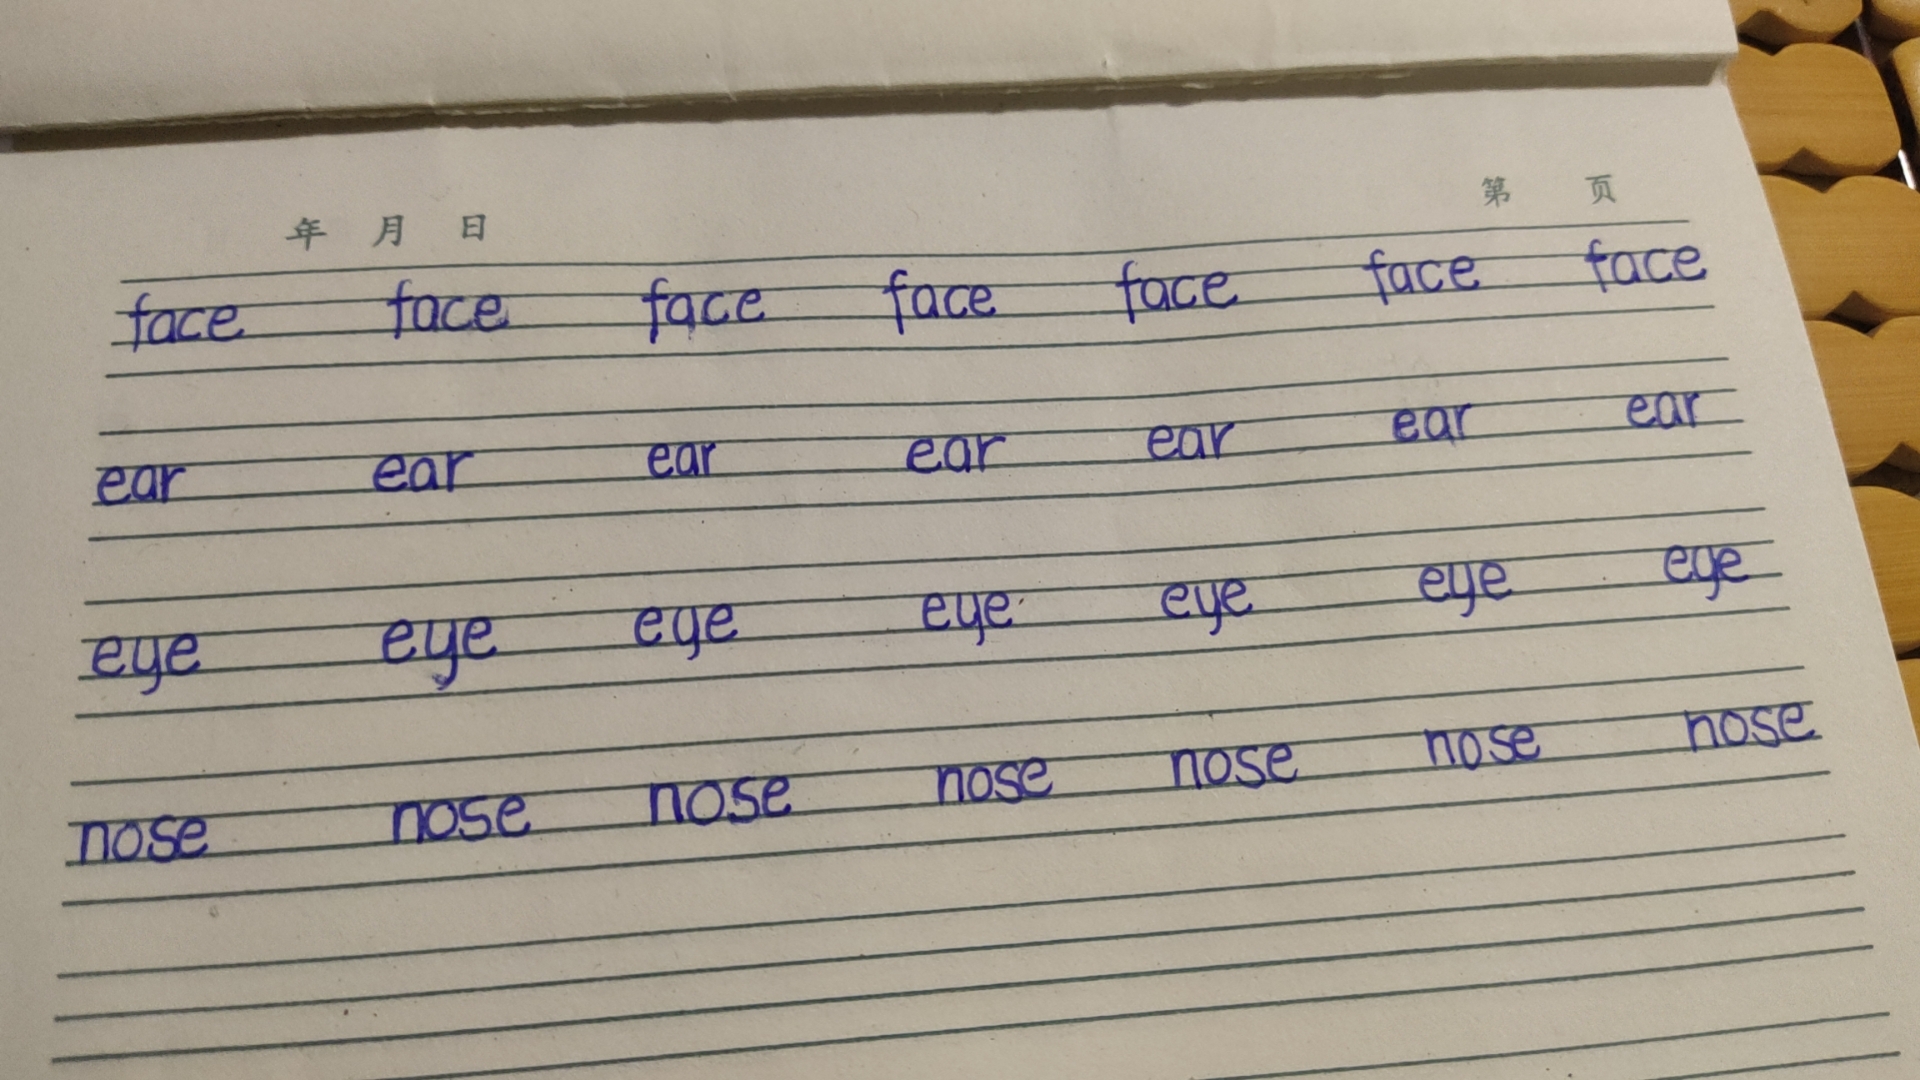 年 月 日 第 页
face face face face face face face
ear ear ear ear ear ear ear
eye eye eye eye eye eye eye
nose nose nose nose nose nose nose